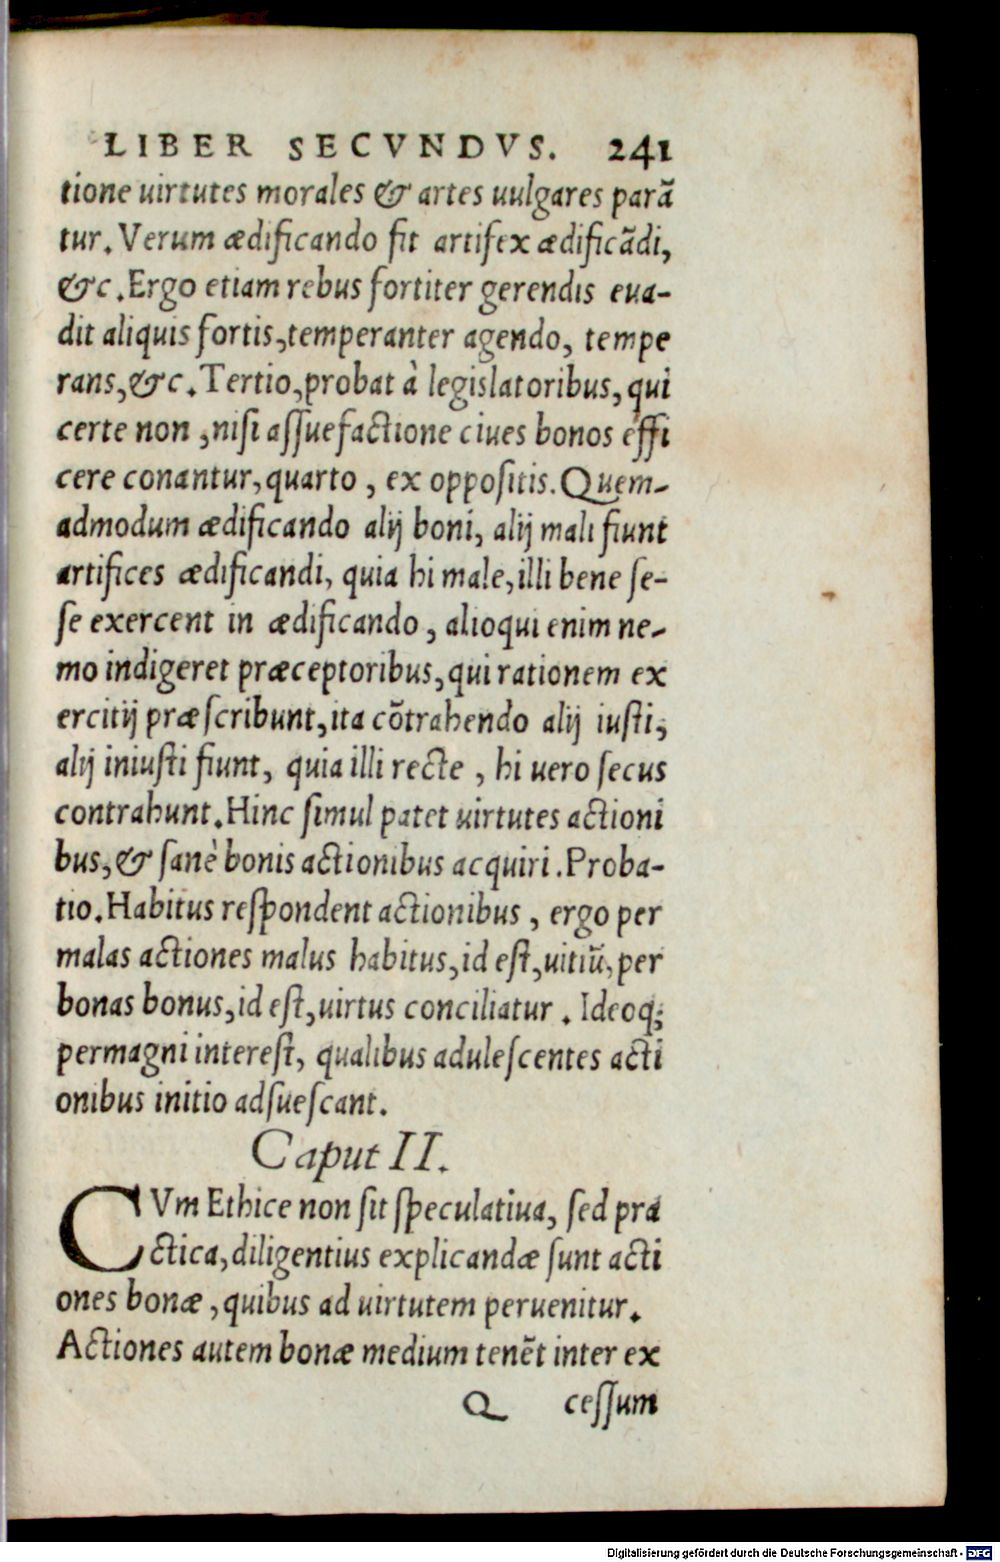 LIBER SECVNDVS. 241
tione uirtutes morales & artes uulgares parā
tur. Verum ædificando fit artifex ædificādi,
&c. Ergo etiam rebus fortiter gerendis eua-
dit aliquis fortis, temperanter agendo, tempe
rans, &c. Tertio, probat à legislatoribus, qui
certe non, nisi assuefactione ciues bonos effi
cere conantur, quarto, ex oppositis. Quem-
admodum ædificando alij boni, alij mali fiunt
artifices ædificandi, quia hi male, illi bene se-
se exercent in ædificando, alioqui enim ne-
mo indigeret præceptoribus, qui rationem ex
ercitij præscribunt, ita cōtrahendo alij iusti,
alij iniusti fiunt, quia illi recte, hi uero secus
contrahunt. Hinc simul patet uirtutes actioni
bus, & sanè bonis actionibus acquiri. Proba-
tio. Habitus respondent actionibus, ergo per
malas actiones malus habitus, id est, uitiū, per
bonas bonus, id est, uirtus conciliatur. Ideoq;
permagni interest, qualibus adulescentes acti
onibus initio adsuescant.
Caput II.
CVm Ethice non sit speculatiua, sed pra
ctica, diligentius explicandæ sunt acti
ones bonæ, quibus ad uirtutem peruenitur.
Actiones autem bonæ medium tenēt inter ex
Q cessum
Digitalisierung gefördert durch die Deutsche Forschungsgemeinschaft - DFG